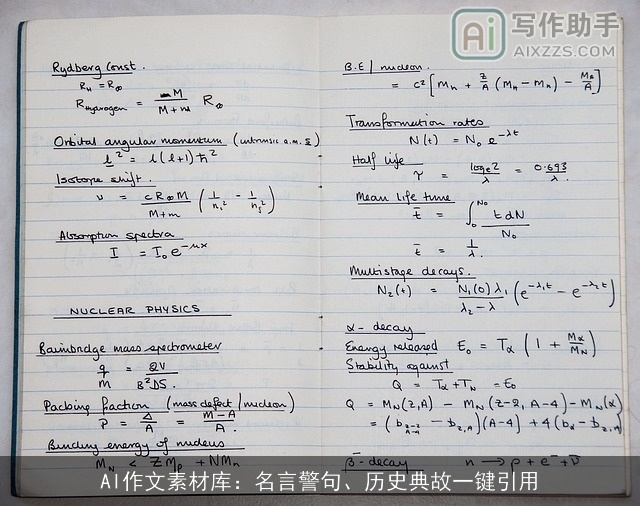 Rydberg Const.
R_H = R_∞
R_Hydrogen = M / M+m R_∞
Orbital angular momentum (intrinsic a.m. s)
l² = l(l+1)ħ²
Isotope shift.
ν = cR_∞M / M+m (1/n₁² - 1/n_j²)
Absorption spectra
I = I₀e^-μx
NUCLEAR PHYSICS
Bainbridge mass spectrometer
q/m = QV / B²DS.
Packing fraction (mass defect/nucleon)
P = Δ/A = M-A / A.
Binding energy of nucleus
M_N < ZM_p + NM_n
B.E/nucleon.
= c²[M_n + Z/A (M_H - M_n) - M_A/A]
Transformation rates
N(t) = N₀ e^-λt
Half life
τ = log_e 2 / λ = 0.693 / λ.
Mean life time
t̄ = ∫₀^N₀ t dN / N₀
t̄ = 1/λ.
Multistage decays.
N₂(t) = N₁(0)λ₁ / λ₂-λ (e^-λ₁t - e^-λ₂t)
α-decay
Energy released E₀ = T_α (1 + M_α/M_N)
Stability against
Q = T_α + T_N = E₀
Q = M_N(Z,A) - M_N(Z-2, A-4) - M_N(α)
= (b_Z-2,A-4 - b_Z,A)(A-4) + 4(b_α - b_Z,A)
β⁻-decay n → p + e⁻ + ν̄
Ai 写作助手
AIXZZS.COM
AI作文素材库：名言警句、历史典故一键引用